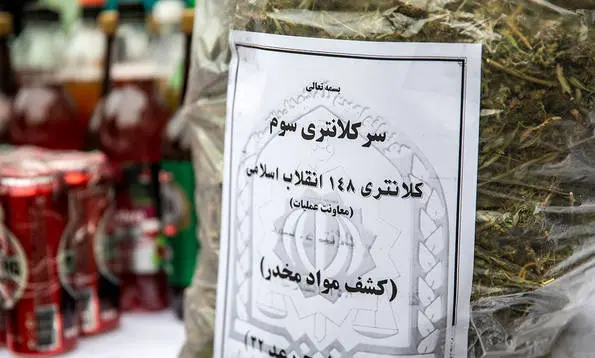 بسمه تعالی
سرکلانتری سوم
کلانتری ۱۴۸ انقلاب اسلامی
(معاونت عملیات)
(کشف مواد مخدر)